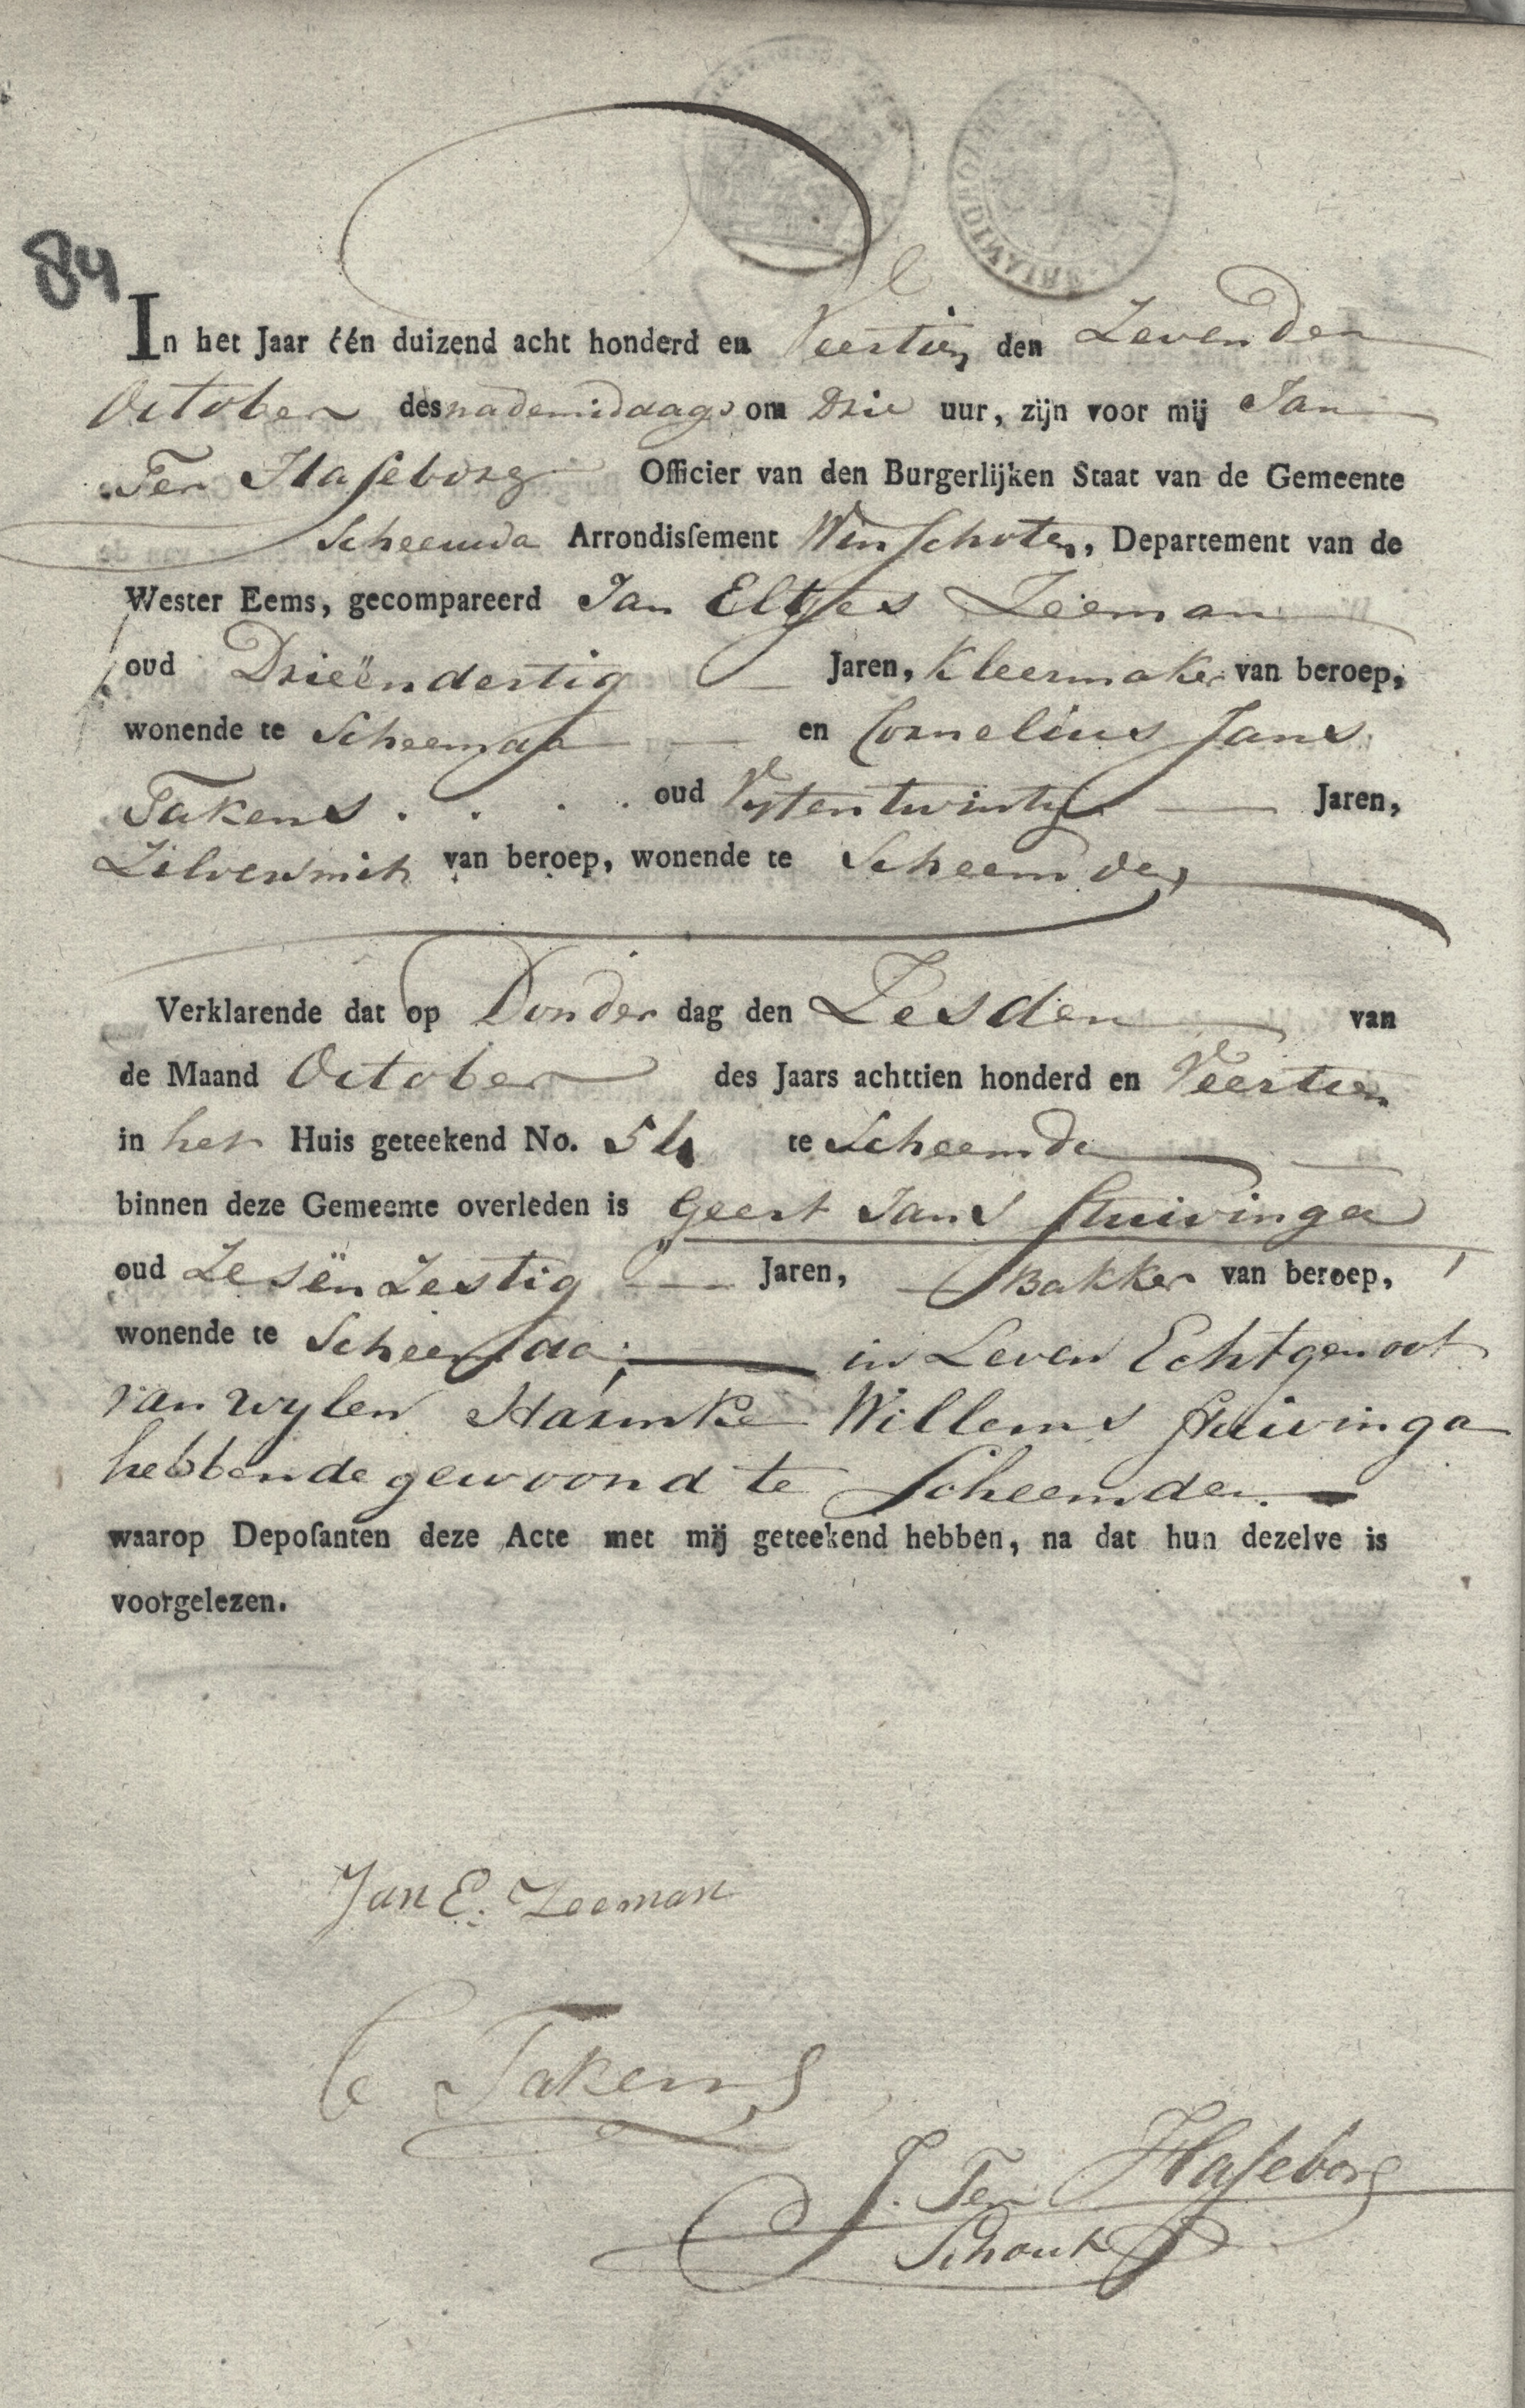 84
In het Jaar één duizend acht honderd en Veertien den Zevenden
October des nademiddags om Drie uur, zijn voor mij Jan
Ter Haseborg Officier van den Burgerlijken Staat van de Gemeente
Scheemda Arrondisſement Winschoten, Departement van de
Wester Eems, gecompareerd Jan Eltjes Zeeman
oud Drieëndertig Jaren, Kleermaker van beroep,
wonende te Scheemda en Cornelius Jans
Takens . . . . oud Vytentwintig Jaren,
Zilversmit van beroep, wonende te Scheemda,
Verklarende dat op Donder dag den Zesden van
de Maand October des Jaars achttien honderd en Veertien
in het Huis geteekend No. 54 te Scheemda
binnen deze Gemeente overleden is Geert Jans Stuivinga
oud Zesënzestig Jaren, Bakker van beroep,
wonende te Scheemda; in Leven Echtgenoot
van wylen Harmke Willems Stuivinga
hebbende gewoond te Scheemda.
waarop Depoſanten deze Acte met mij geteekend hebben, na dat hun dezelve is
voorgelezen.
Jan E. Zeeman
C Takens
J. Ter Haseborg
Schout